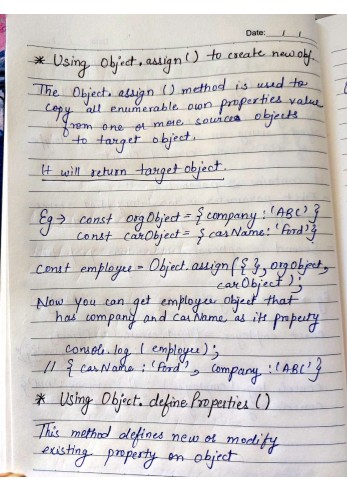 Date: / /
* Using Object.assign() to create new obj.
The Object.assign () method is used to
copy all enumerable own properties value
from one or more source objects
to target object.
It will return target object.
Eg → const orgObject = { company : 'ABC' }
const carObject = { carName : 'Ford' }
const employee = Object.assign ( { }, orgObject,
carObject ) ;
Now you can get employee object that
has company and carName as its property
console.log ( employee ) ;
// { carName : 'Ford' , company : 'ABC' }
* Using Object.defineProperties ()
This method defines new or modify
existing property on object